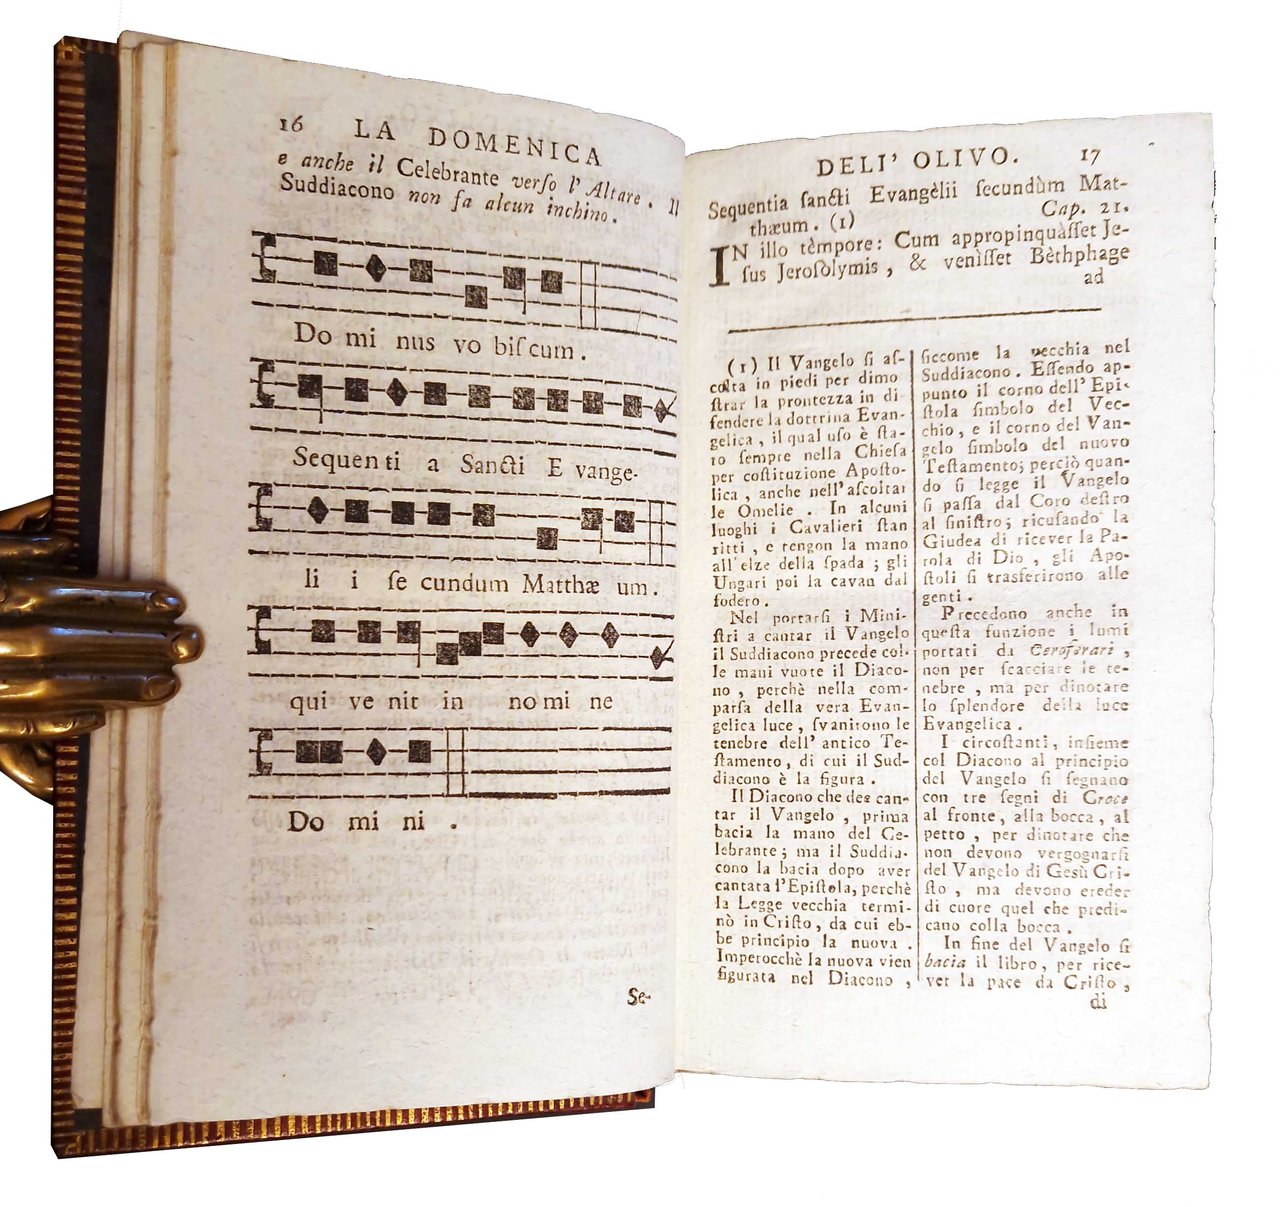 16 LA DOMENICA
e anche il Celebrante verſo l' Altare. Il
Suddiacono non fa alcun inchino.
Do mi nus vo biſcum.
Sequen ti a Sancti E vange-
li i ſe cundum Matthæ um.
qui ve nit in no mi ne
Do mi ni .
Se-
DELL' OLIVO. 17
Sequentia ſancti Evangèlii ſecundùm Mat-
thæum. (1) Cap. 21.
IN illo tèmpore: Cum appropinquàſſet Je-
ſus Jeroſolymis, & venìſſet Bèthphage
ad
(1) Il Vangelo ſi aſ-
colta in piedi per dimo
ſtrar la prontezza in di
fendere la dottrina Evan-
gelica, il qual uſo è ſta-
to ſempre nella Chieſa
per coſtituzione Apoſto-
lica, anche nell' aſcoltar
le Omelie. In alcuni
luoghi i Cavalieri ſtan
ritti, e tengon la mano
all' elze della ſpada; gli
Ungari poi la cavan dal
fodero.
Nel portarſi i Mini-
ſtri a cantar il Vangelo
il Suddiacono precede col-
le mani vuote il Diaco-
no, perchè nella com-
parſa della vera Evan-
gelica luce, ſvanirono le
tenebre dell' antico Te-
ſtamento, di cui il Sud-
diacono è la figura.
Il Diacono che dee can-
tar il Vangelo, prima
bacia la mano del Ce-
lebrante; ma il Suddia-
cono la bacia dopo aver
cantata l'Epiſtola, perchè
la Legge vecchia termi-
nò in Criſto, da cui eb-
be principio la nuova.
Imperocchè la nuova vien
figurata nel Diacono,
ſiccome la vecchia nel
Suddiacono. Eſſendo ap-
punto il corno dell' Epi-
ſtola ſimbolo del Vec-
chio, e il corno del Van-
gelo ſimbolo del nuovo
Teſtamento; perciò quan-
do ſi legge il Vangelo
ſi paſſa dal Coro deſtro
al ſiniſtro; ricuſando la
Giudea di ricever la Pa-
rola di Dio, gli Apo-
ſtoli ſi trasferirono alle
genti.
Precedono anche in
queſta funzione i lumi
portati da Ceroferari,
non per ſcacciare le te-
nebre, ma per dinotare
lo ſplendore della luce
Evangelica.
I circoſtanti, inſieme
col Diacono al principio
del Vangelo ſi ſegnano
con tre ſegni di Croce
al fronte, alla bocca, al
petto, per dinotare che
non devono vergognarſi
del Vangelo di Gesù Cri-
ſto, ma devono creder
di cuore quel che predi-
cano colla bocca.
In fine del Vangelo ſi
bacia il libro, per rice-
ver la pace da Criſto,
di